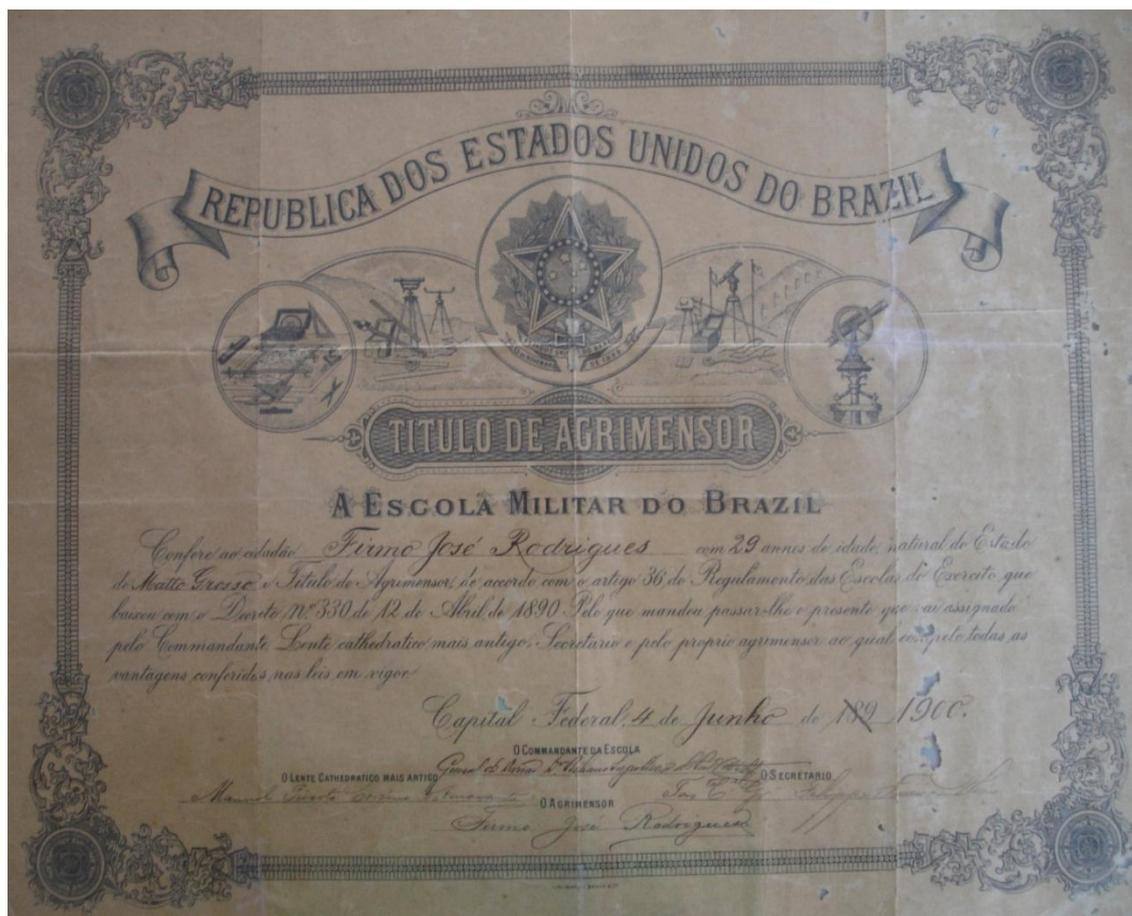 REPUBLICA DOS ESTADOS UNIDOS DO BRAZIL
TITULO DE AGRIMENSOR
A ESCOLA MILITAR DO BRAZIL
Confere ao cidadão Firmo José Rodrigues com 29 annos de idade, natural do Estado
de Matto Grosso o Titulo de Agrimensor, de accordo com o artigo 36 do Regulamento das Escolas do Exercito que
baixou com o Decreto Nº 330 de 12 de Abril de 1890. Pelo que mandou passar-lhe o presente que vai assignado
pelo Commandante, Lente cathedratico mais antigo, Secretario e pelo proprio agrimensor ao qual todas as
vantagens conferidas nas leis em vigor.
Capital Federal, 4 de Junho de 189 1900.
O COMMANDANTE DA ESCOLA
General de
O LENTE CATHEDRATICO MAIS ANTIGO
O SECRETARIO
Manuel
O AGRIMENSOR
Firmo José Rodrigues